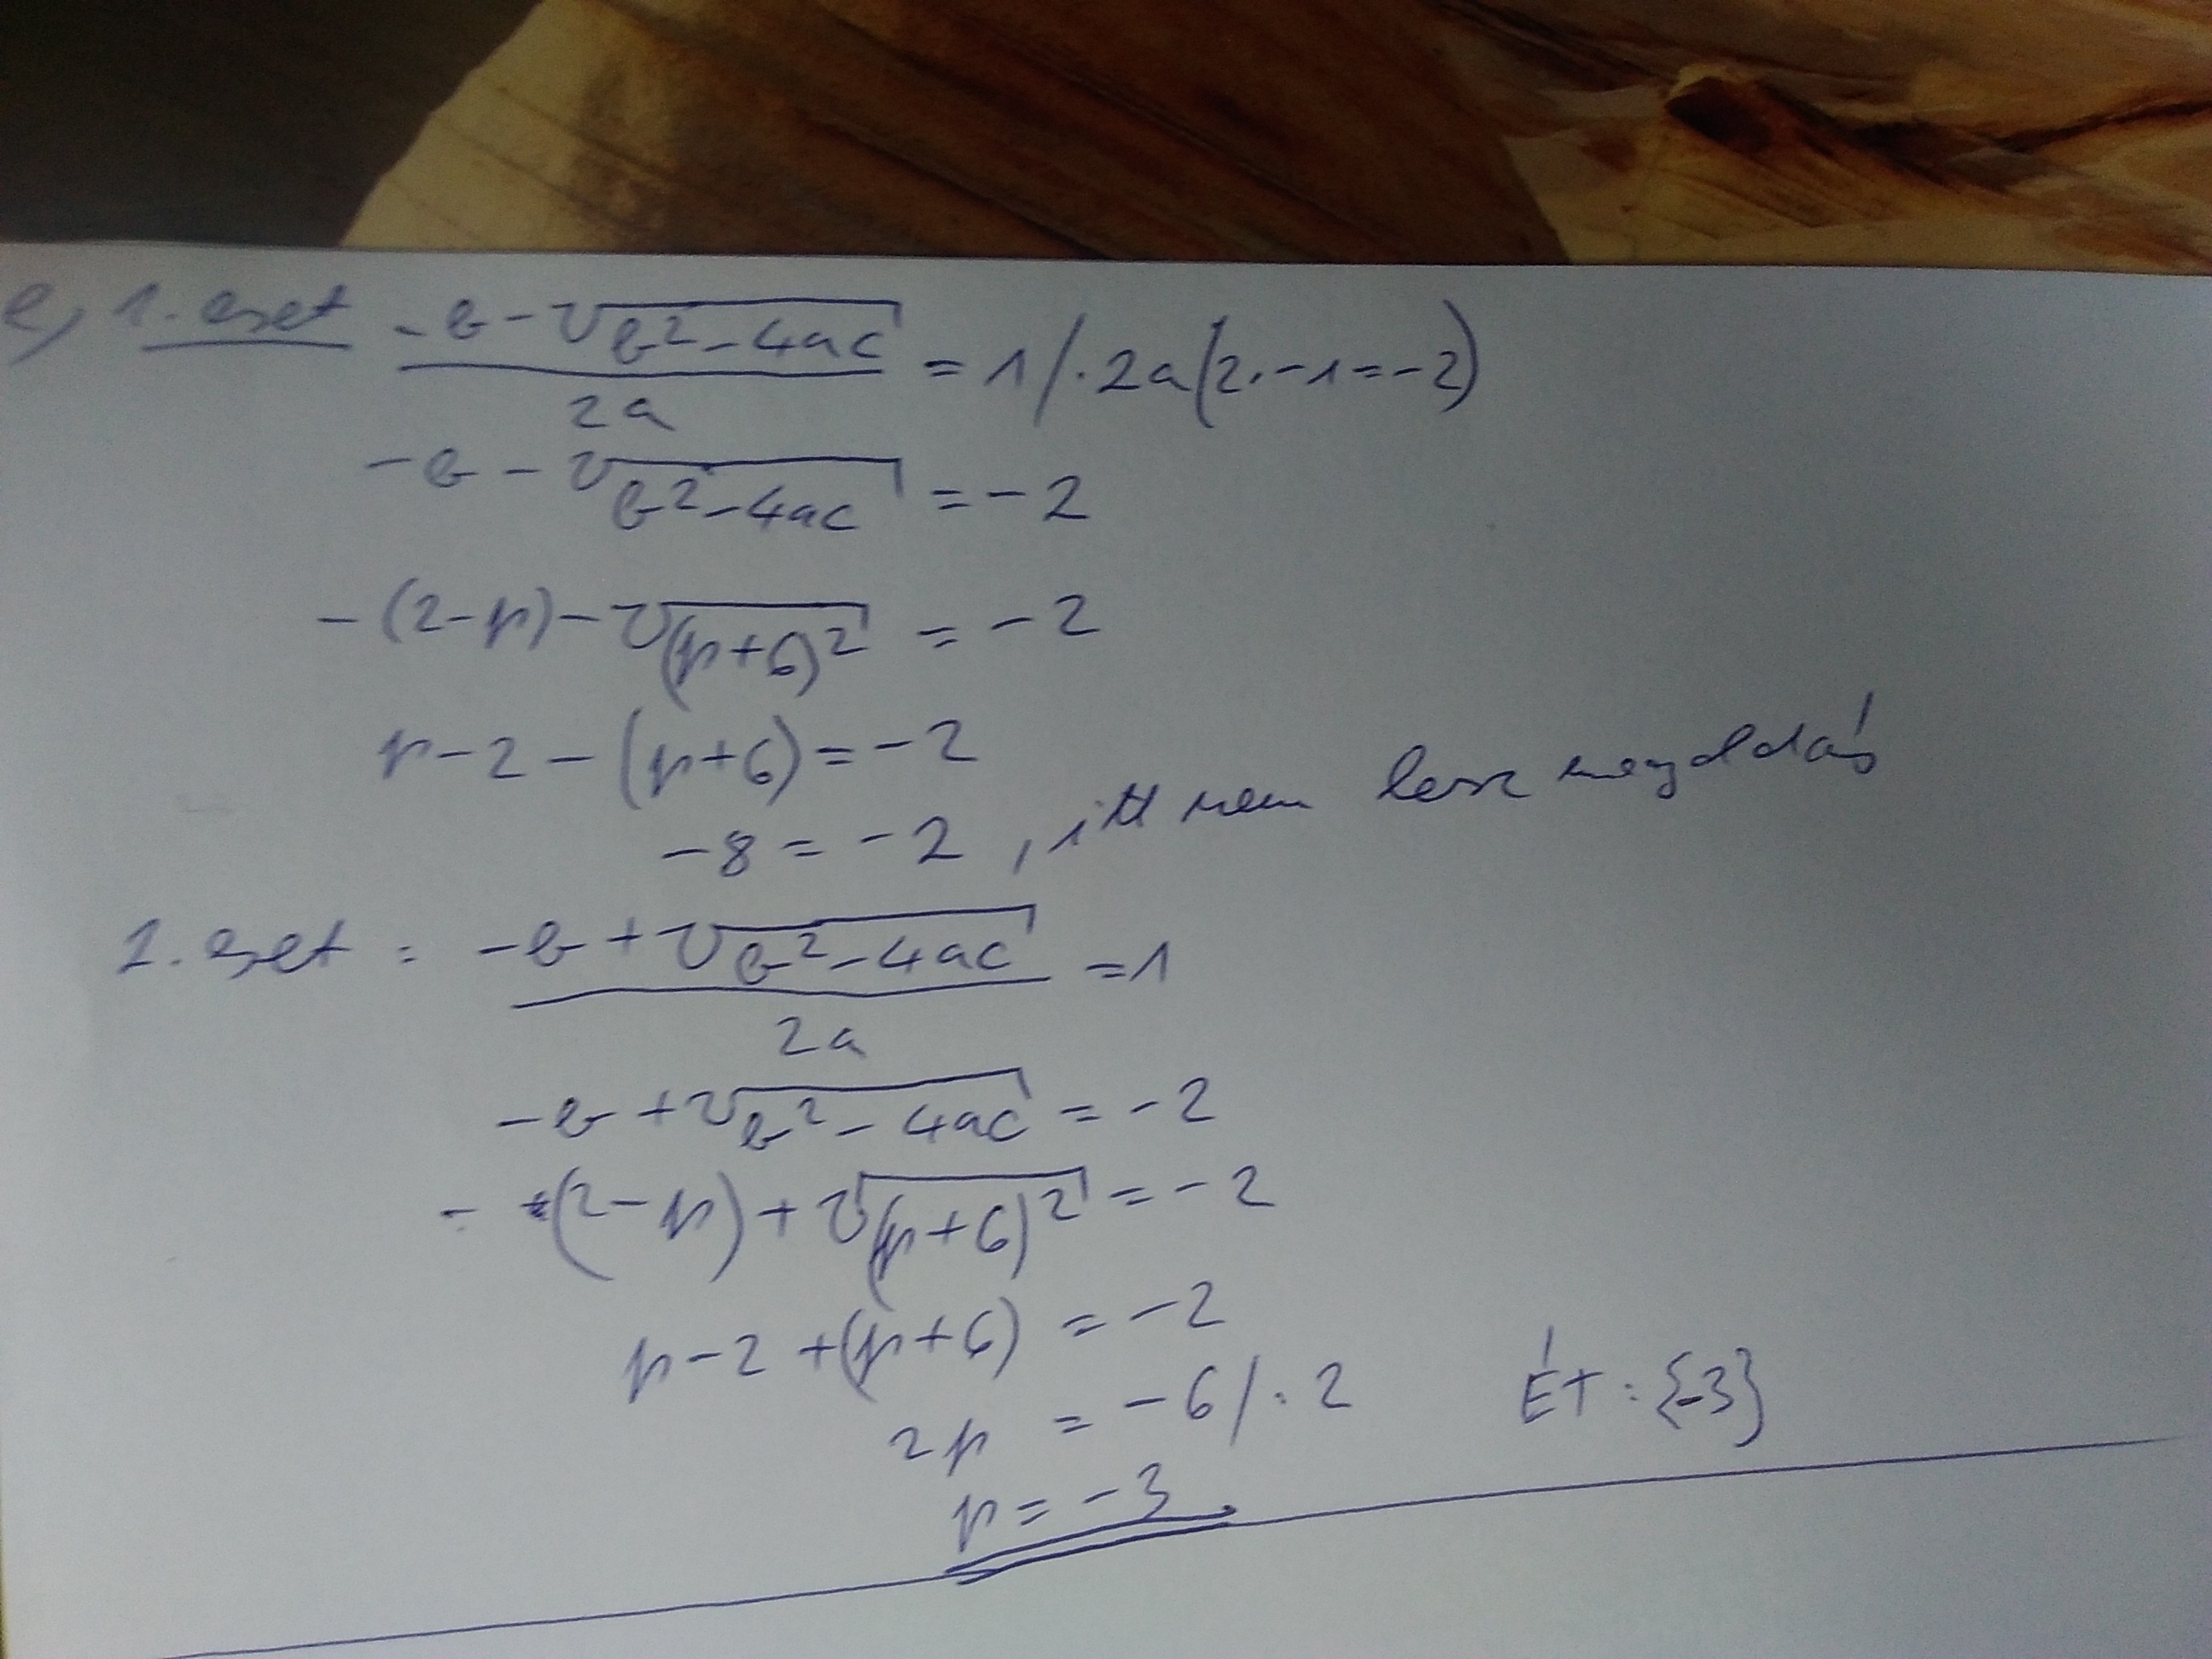 e, 1. eset (-b-√(b²-4ac))/(2a) = 1 /·2a (2·-1=-2)
-b-√(b²-4ac) = -2
-(2-p)-√((p+6)²) = -2
p-2-(p+6)=-2
-8=-2, itt nem lesz megoldás
2. eset: (-b+√(b²-4ac))/(2a) =1
-b+√(b²-4ac) = -2
-(2-p)+√((p+6)²) = -2
p-2+(p+6) = -2
2p = -6/:2 ÉT: {-3}
p=-3